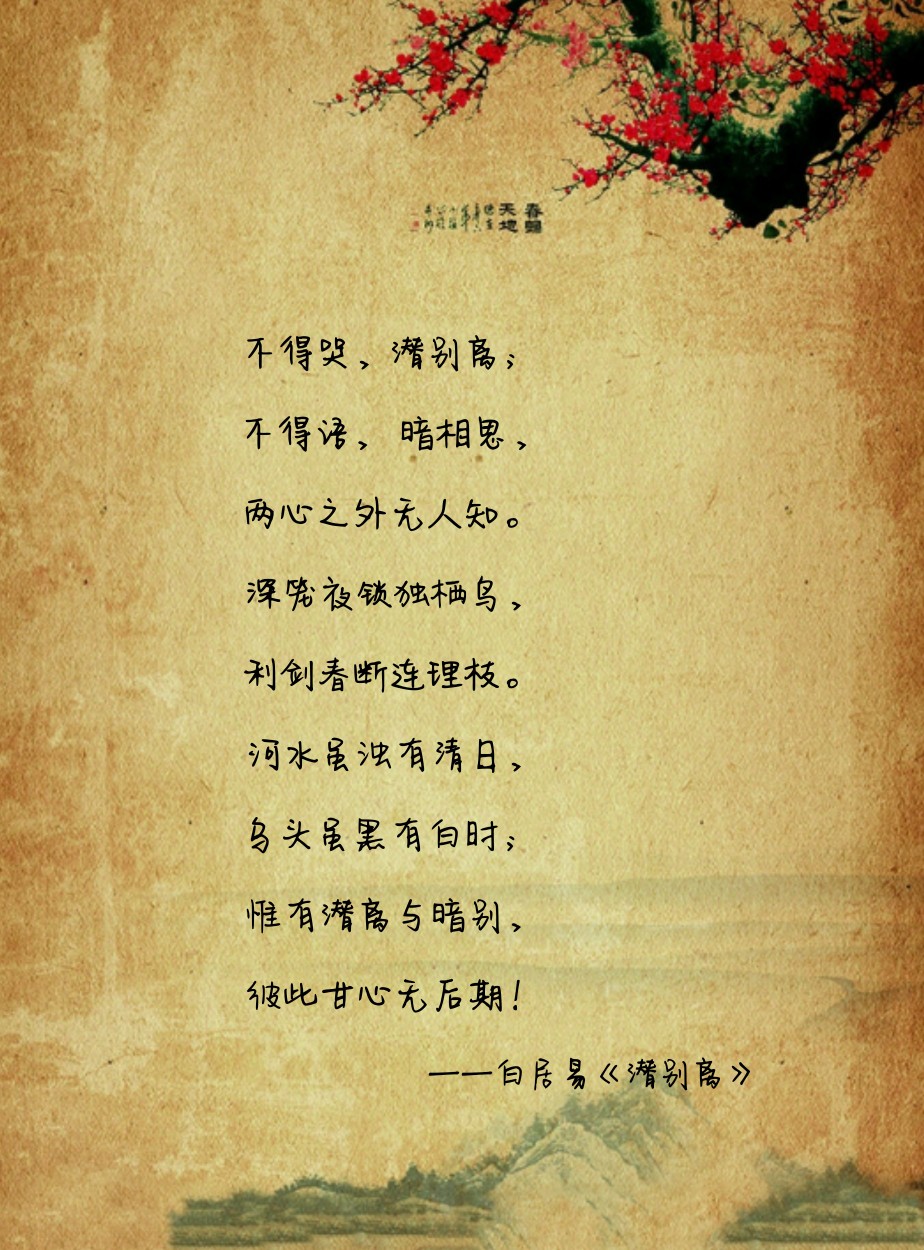 春归
天地
不得哭、潜别离；
不得语、暗相思、
两心之外无人知。
深笼夜锁独栖鸟、
利剑春断连理枝。
河水虽浊有清日、
乌头虽黑有白时；
惟有潜离与暗别、
彼此甘心无后期！
——白居易《潜别离》